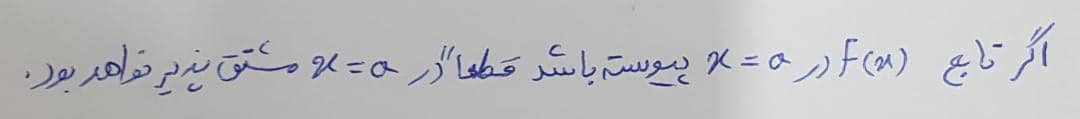 اگر تابع f(x) در x = a پیوسته باشد قطعاً در x = a مشتق پذیر خواهد بود.